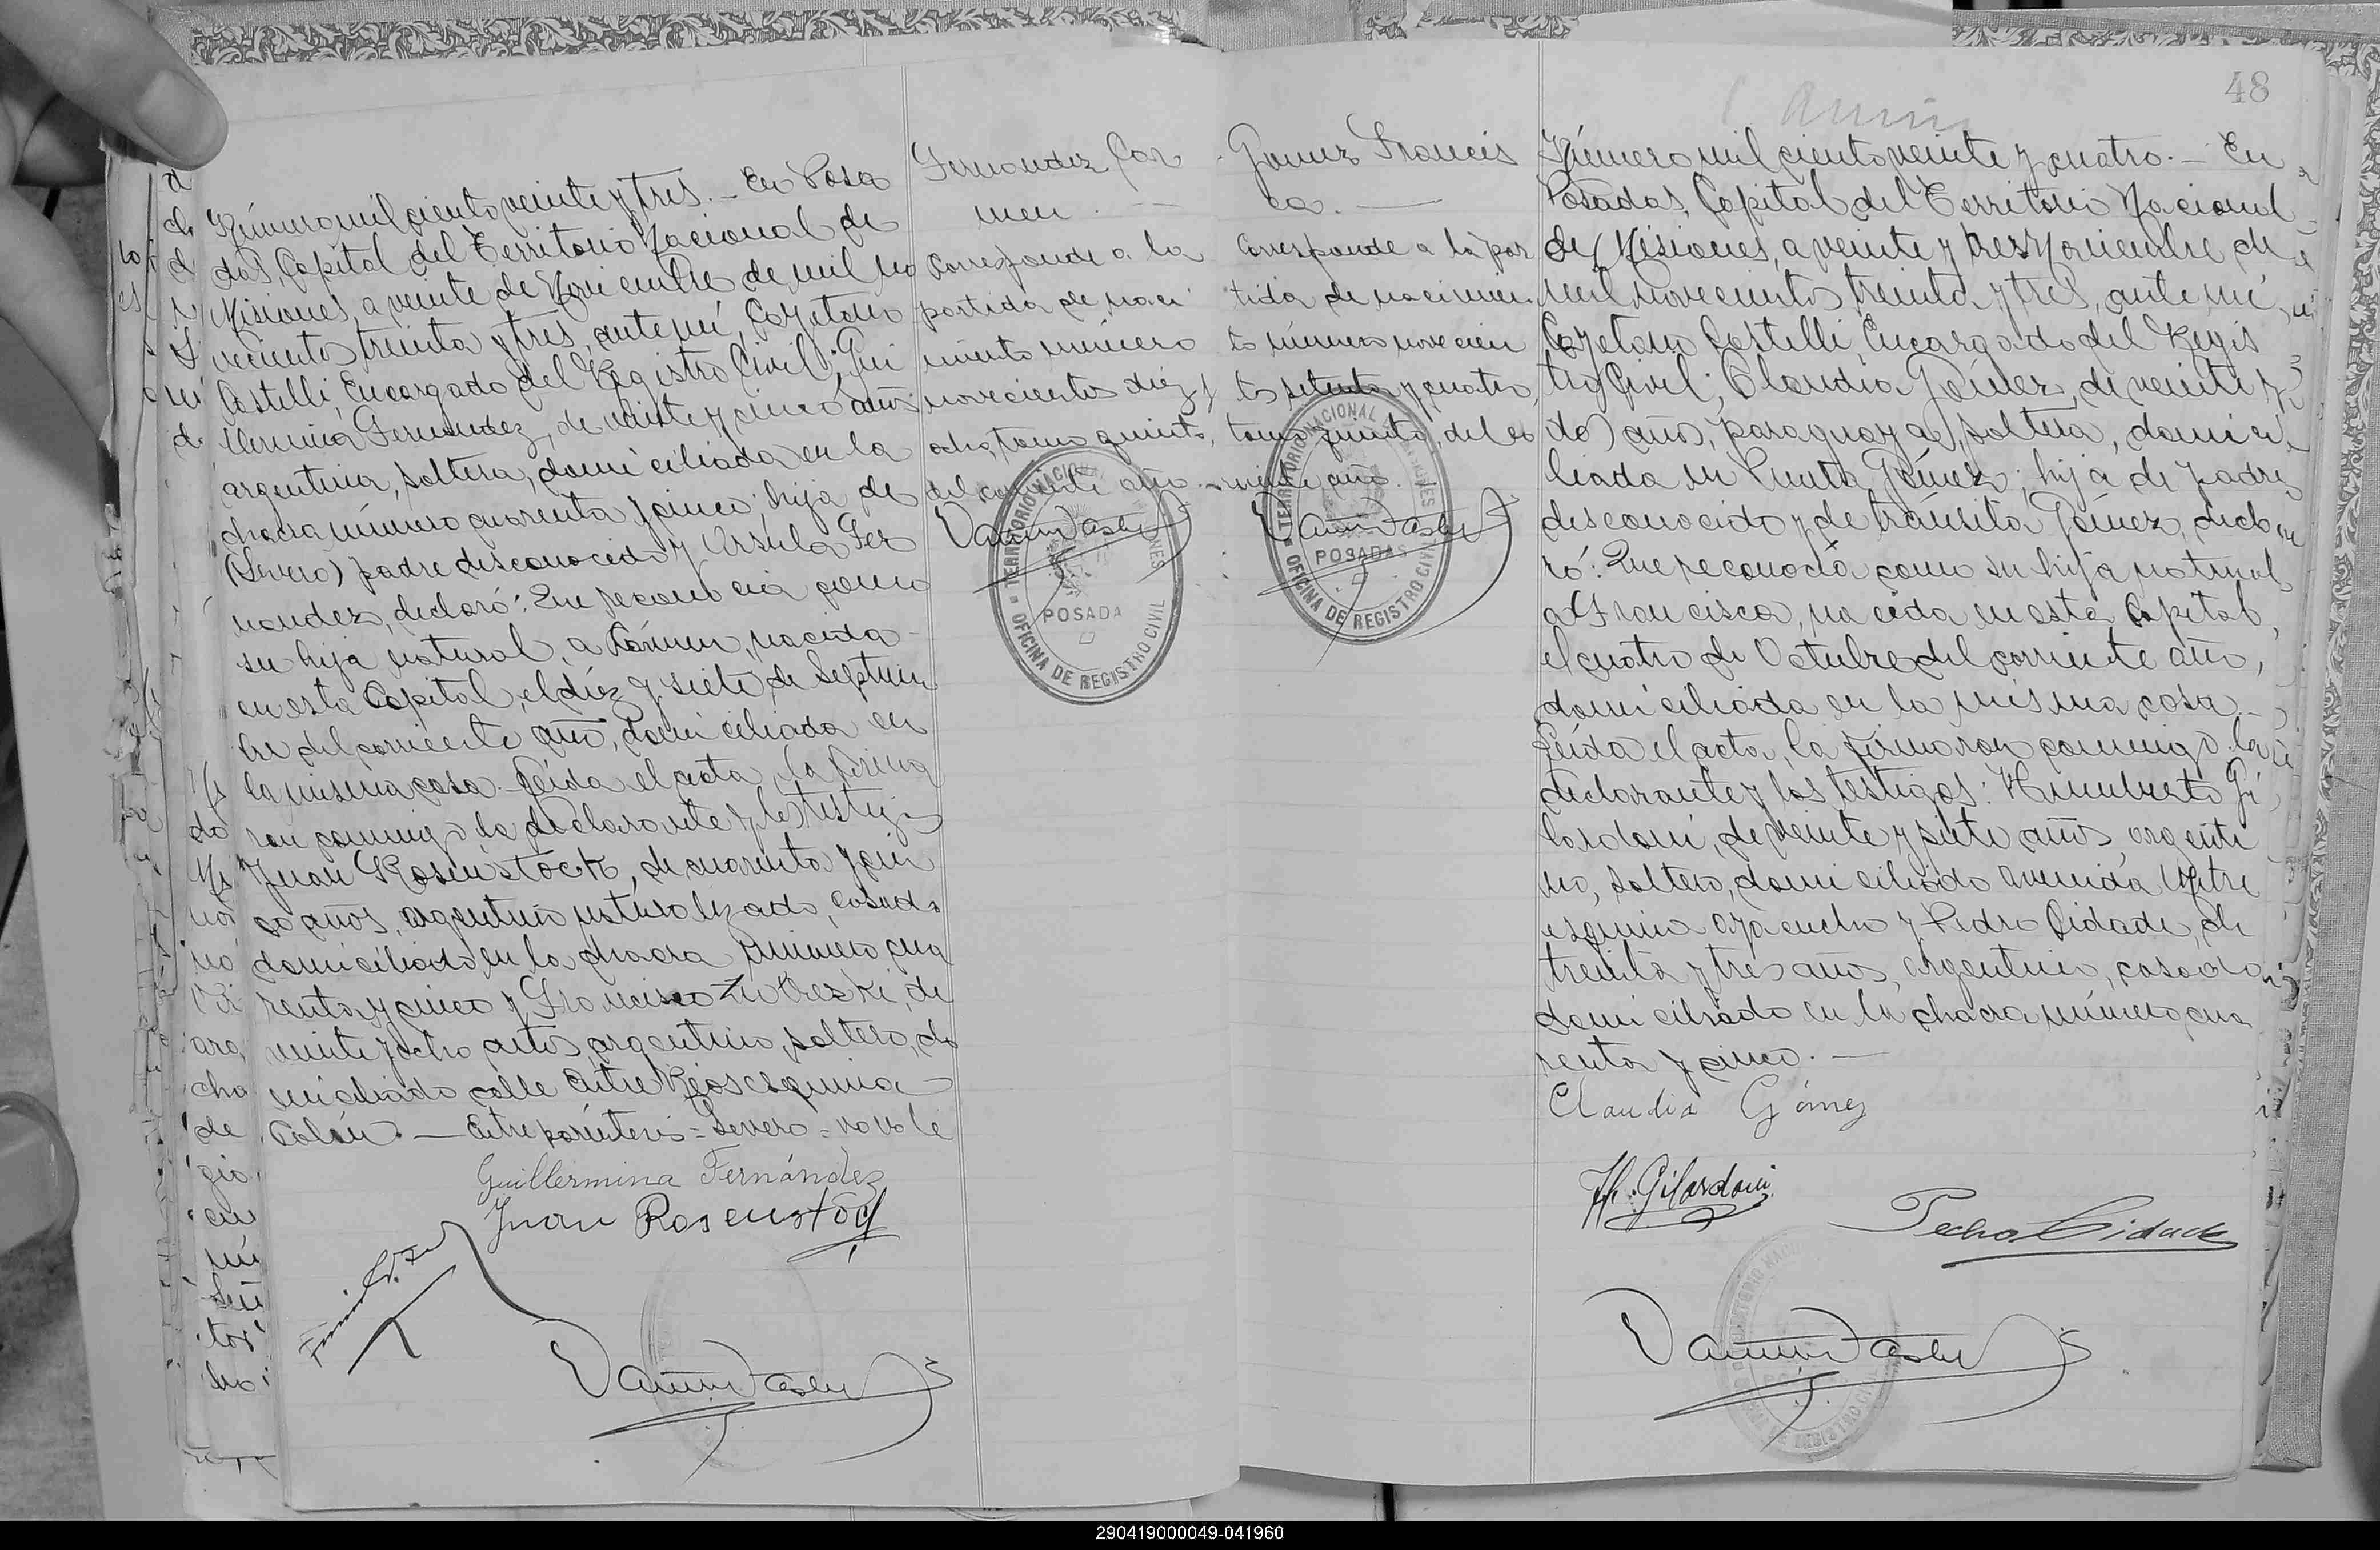 Número mil ciento veinte y tres. — En Posa
das, Capital del Territorio Nacional de
Misiones, a veinte de Noviembre de mil no
vecientos treinta y tres, ante mí, Cayetano
Castelli, Encargado del Registro Civil; Gui
llermina Fernandez, de veinte y cinco años
argentina, soltera, domiciliada en la
chacra número cuarenta y cinco, hija de
(Severo) padre desconocido y Ursula Fer
nandez, declaró: Que reconocia como
su hija natural, a Cármen, nacida
en esta Capital, el diez y siete de Septiem
bre del corriente año, domiciliada en
la misma casa. Leida el acta, la firma
ron conmigo la declarante y los testigos
Juan Rosenstock, de cuarenta y cin
co años, argentino naturalizado, casado
domiciliado en la chacra número cua
renta y cinco y Francisco de
veinte y ocho años, argentino, soltero, do
miciliado calle Entre Rios esquina
Colón. — Entre paréntesis = Severo = no vale
Guillermina Fernández
Juan Rosenstock
Fernandez Car
men. —
Corresponde a la
partida de naci
miento número
novecientos diez y
ocho, tomo quinto,
del corriente año.
TERRITORIO NACIONAL MISIONES
POSADAS
OFICINA DE REGISTRO CIVIL
Gomez Francis
ca. —
Corresponde a la par
tida de nacimien
to número novecien
tos setenta y cuatro,
tomo quinto, del co
rriente año.
TERRITORIO NACIONAL MISIONES
POSADAS
OFICINA DE REGISTRO CIVIL
48
Número mil ciento veinte y cuatro. — En
Posadas, Capital del Territorio Nacional
de Misiones, a veinte y tres Noviembre de
mil novecientos treinta y tres, ante mí
Cayetano Castelli, Encargado del Regis
tro Civil; Claudia Gómez, de veinte y
dos años, paraguaya, soltera, domici
liada en Punta Gómez; hija de padre
desconocido y de Tránsita Gómez, decla
ró: Que reconocia como su hija natural
a Francisca, nacida en esta Capital,
el cuatro de Octubre del corriente año,
domiciliada en la misma casa. —
Leida el acta, la firmaron conmigo la
declarante y los testigos: Humberto Gi
lardoni, de veinte y siete años, argenti
no, soltero, domiciliado avenida Mitre
esquina Ayacucho y Pedro Cidade, de
treinta y tres años, argentino, casado
domiciliado en la chacra número cua
renta y cinco. —
Claudia Gómez
H. Gilardoni
Pedro Cidade
290419000049-041960